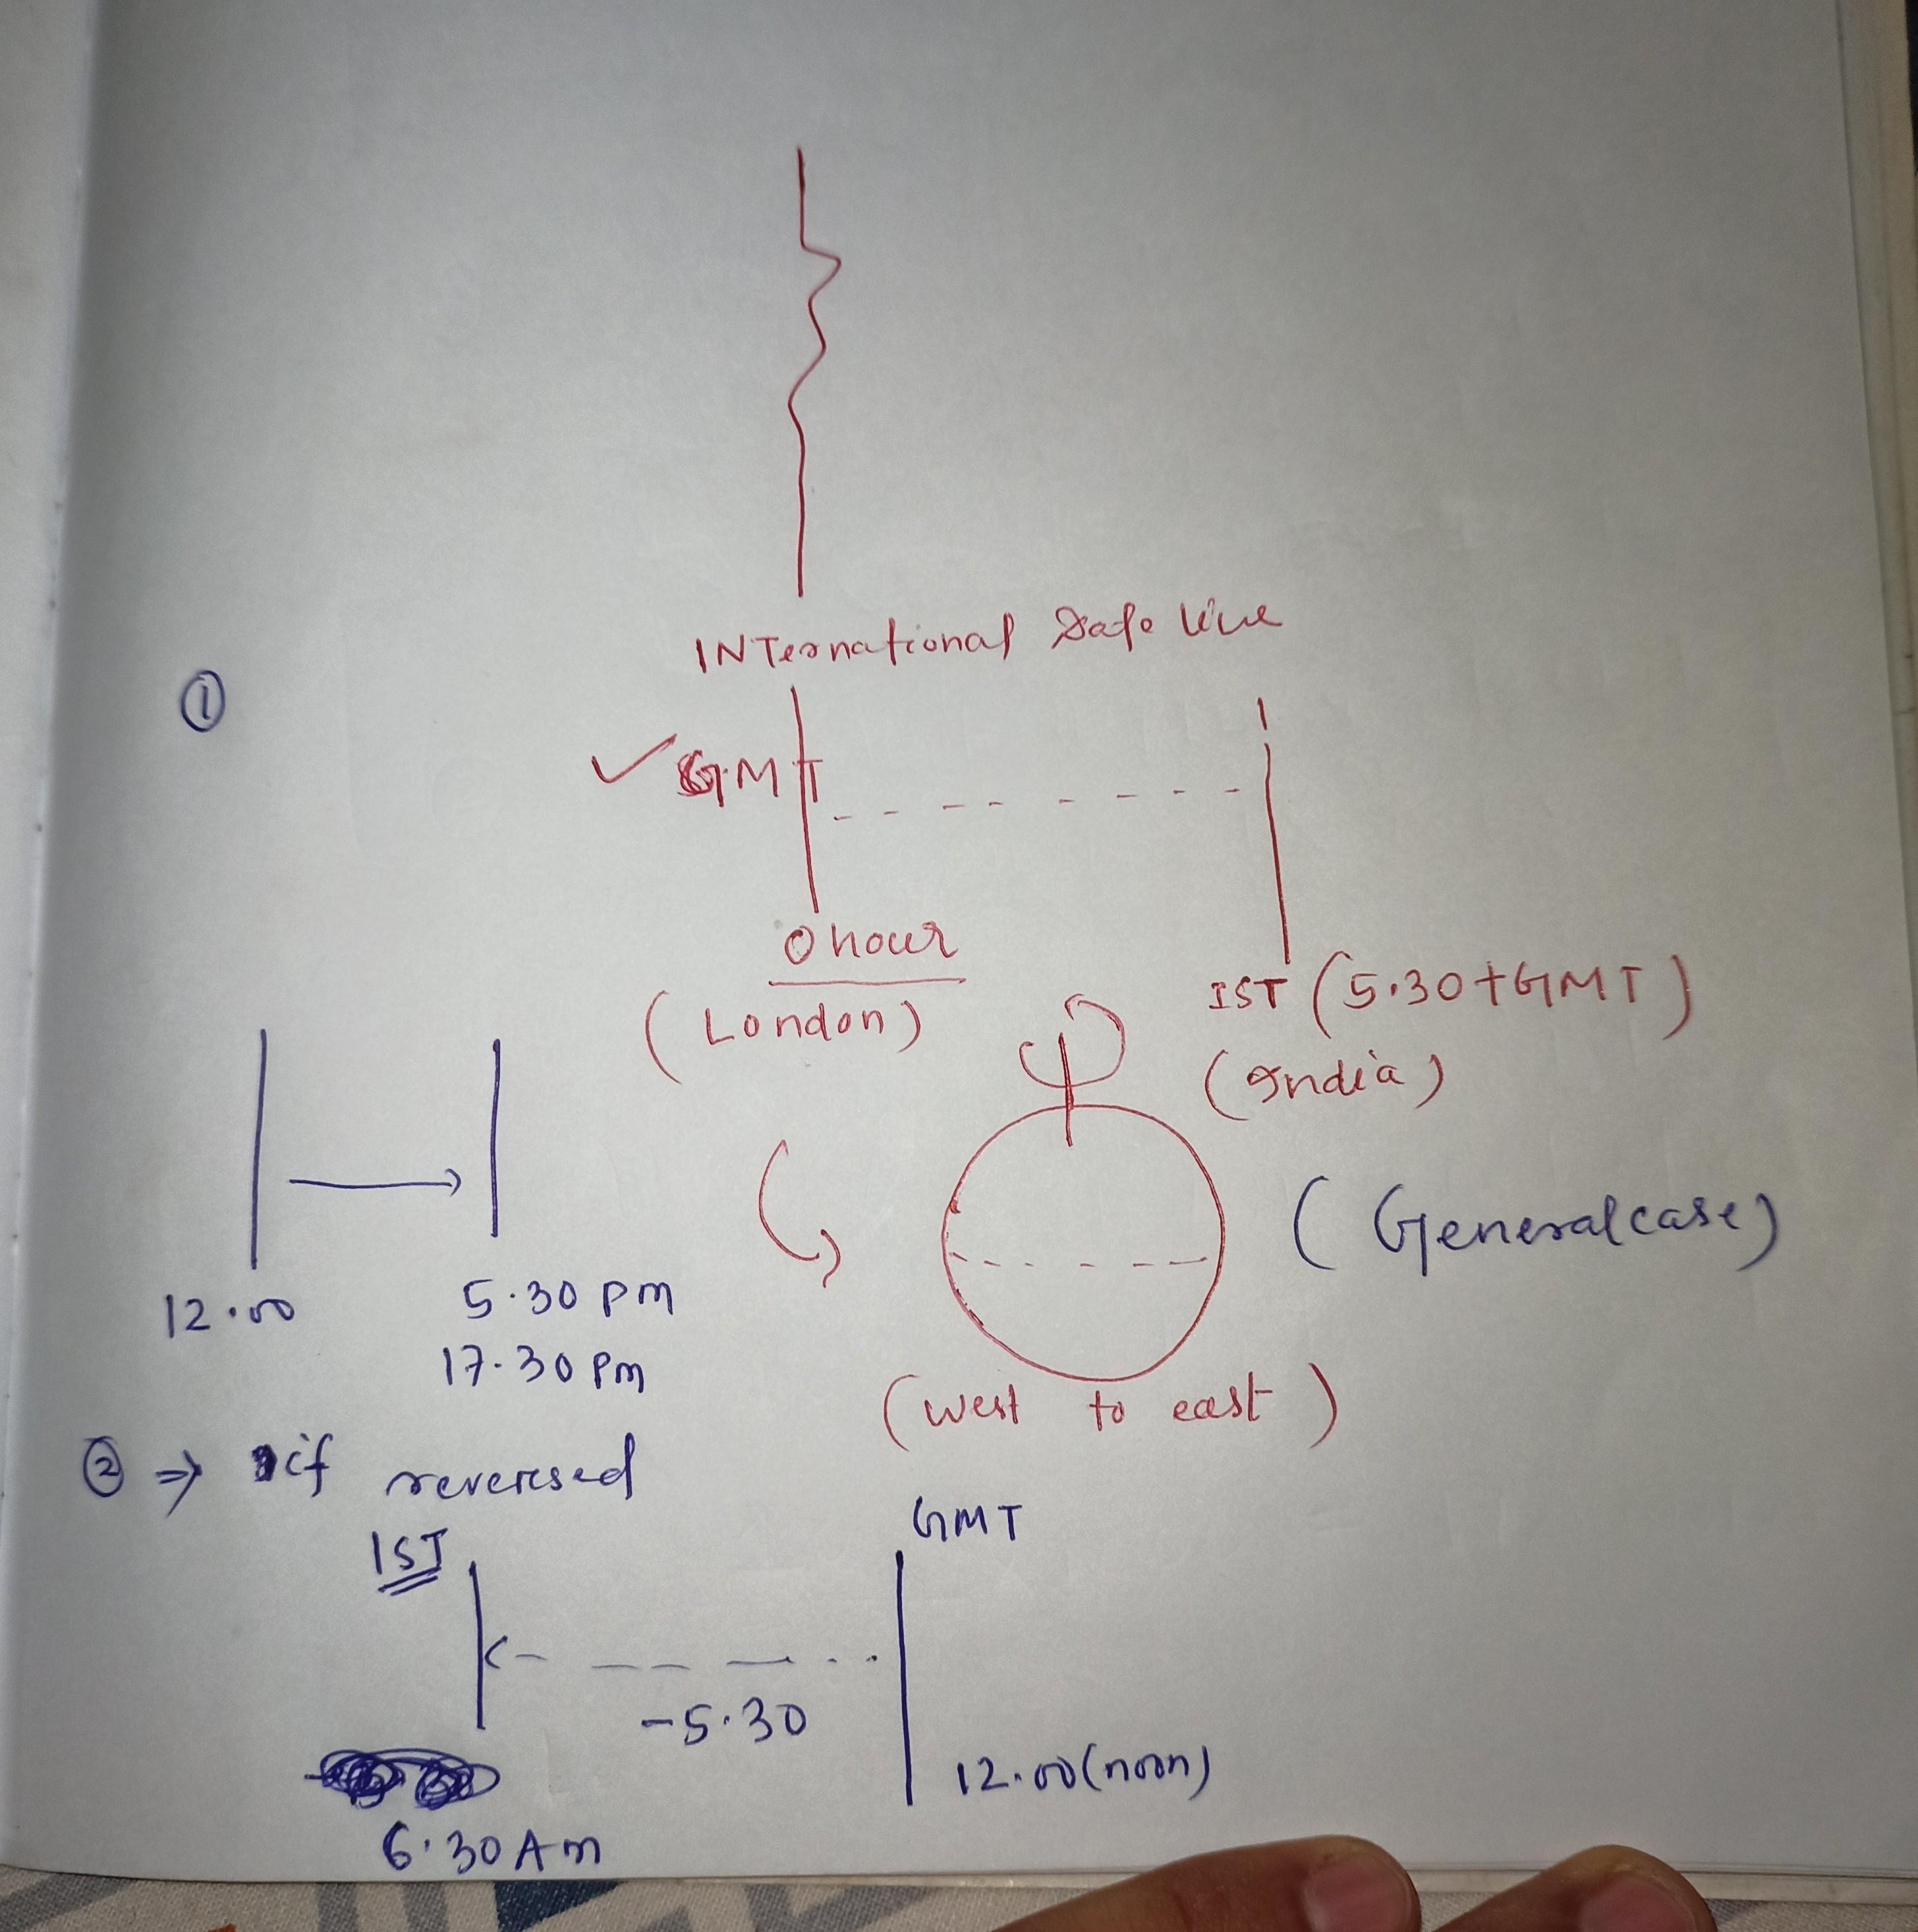 INTernational Date line
①
GMT
0 hour
(London)
IST (5.30+GMT)
(India)
(General case)
12.00
5.30 pm
17.30 pm
(west to east)
② ⇒ if reveresed
IST
GMT
-5.30
12.00 (noon)
6.30 Am